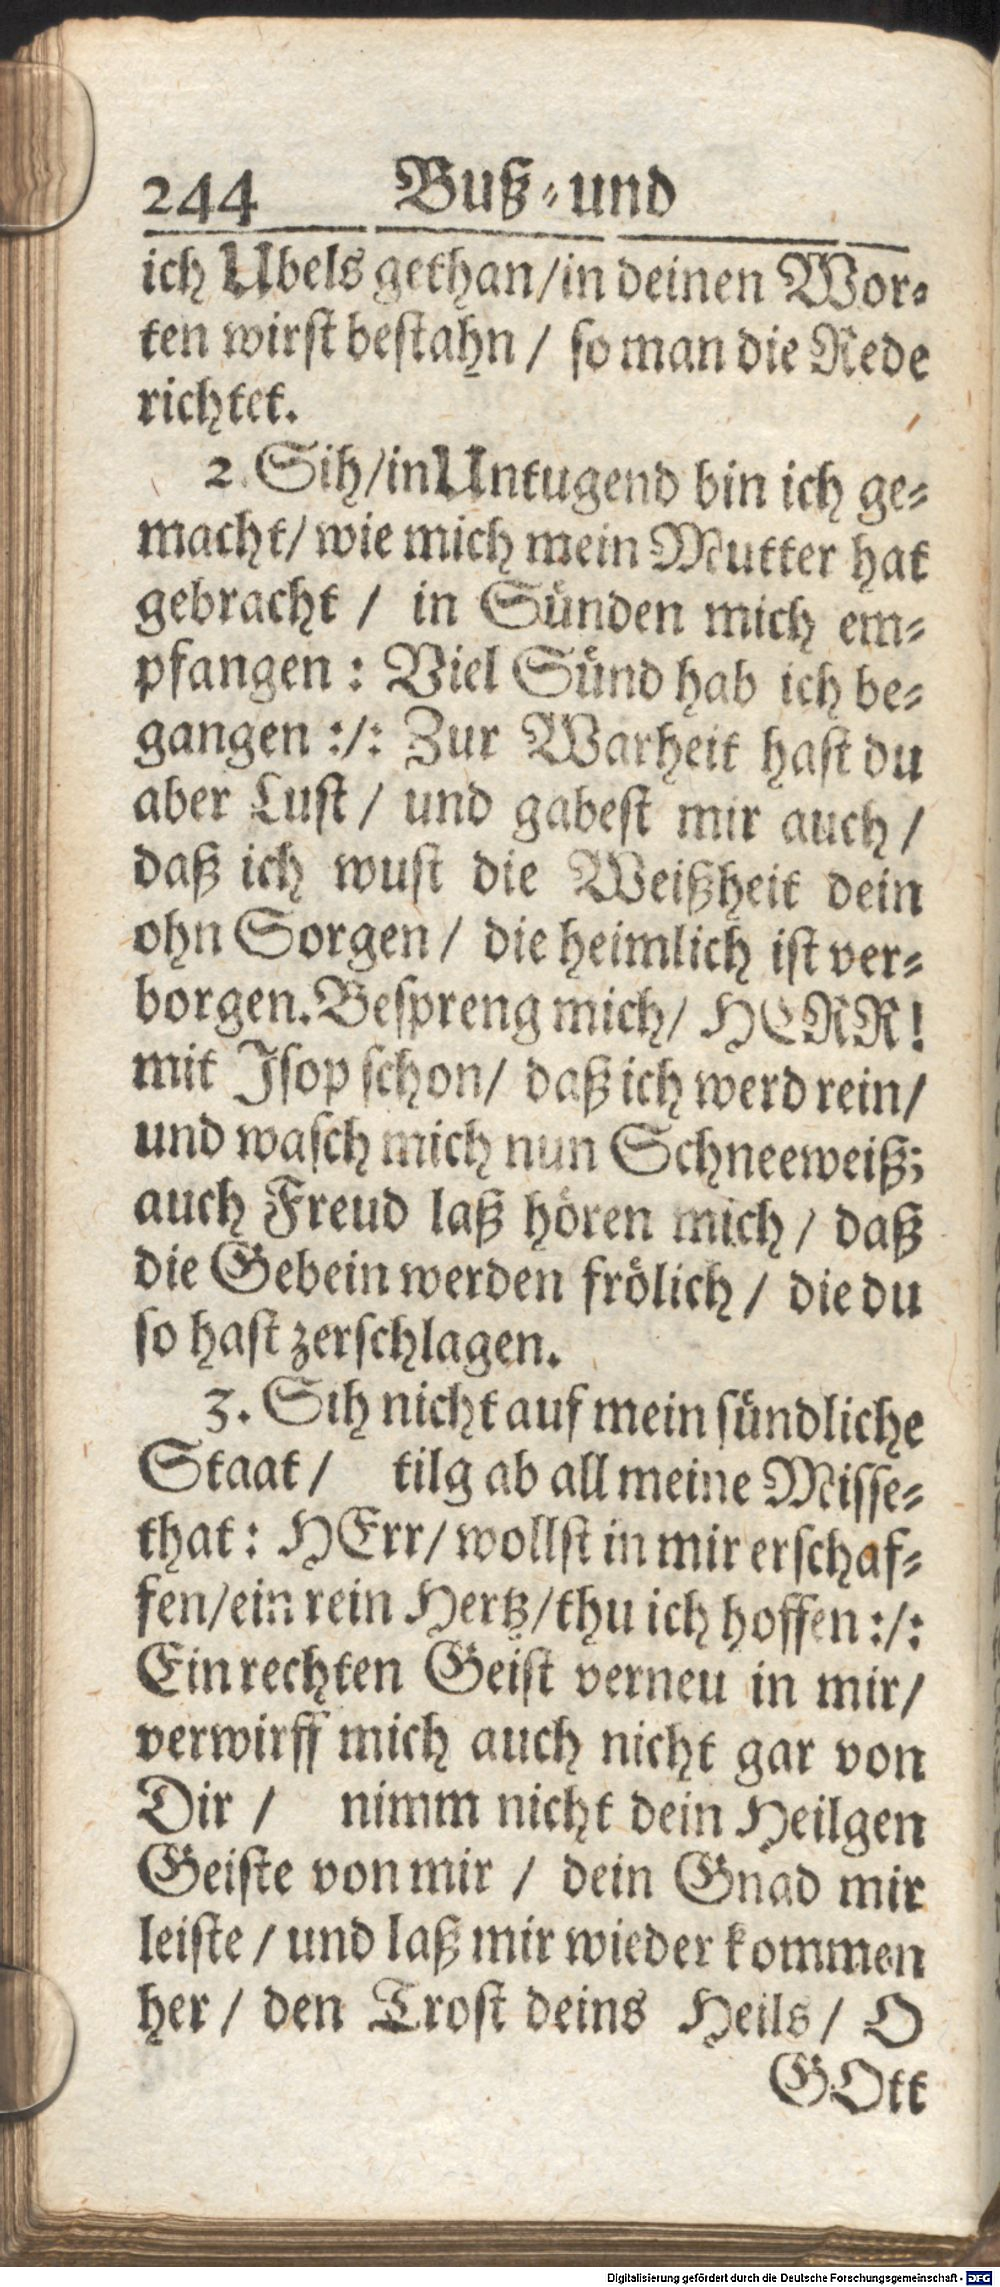 244 Buß-und
ich Ubels gethan/in deinen Wor-
ten wirst bestahn / so man die Rede
richtet.
2. Sih/in Untugend bin ich ge-
macht/ wie mich mein Mutter hat
gebracht / in Sünden mich em-
pfangen : Viel Sünd hab ich be-
gangen :/: Zur Warheit hast du
aber Lust / und gabest mir auch /
daß ich wust die Weißheit dein
ohn Sorgen / die heimlich ist ver-
borgen. Bespreng mich/ HERR!
mit Isop schon/ daß ich werd rein/
und wasch mich nun Schneeweiß;
auch Freud laß hören mich / daß
die Gebein werden frölich / die du
so hast zerschlagen.
3. Sih nicht auf mein sündliche
Staat / tilg ab all meine Misse-
that : HErr/ wollst in mir erschaf-
fen/ein rein Hertz/thu ich hoffen :/:
Ein rechten Geist verneu in mir/
verwirff mich auch nicht gar von
Dir / nimm nicht dein Heilgen
Geiste von mir / dein Gnad mir
leiste / und laß mir wieder kommen
her / den Trost deins Heils / O
GOtt
Digitalisierung gefördert durch die Deutsche Forschungsgemeinschaft - DFG